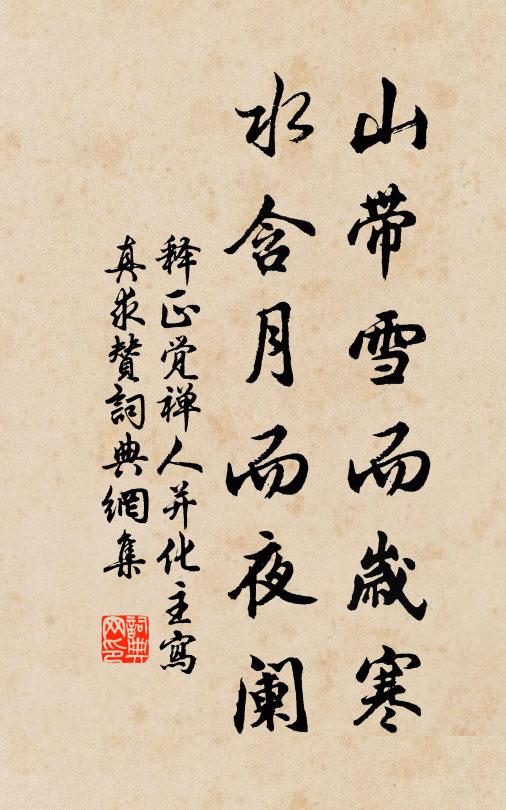 山带雪而岁寒
水含月而夜阑
释正觉禅人并化主写
真求赞詞典網集
詞典
网印